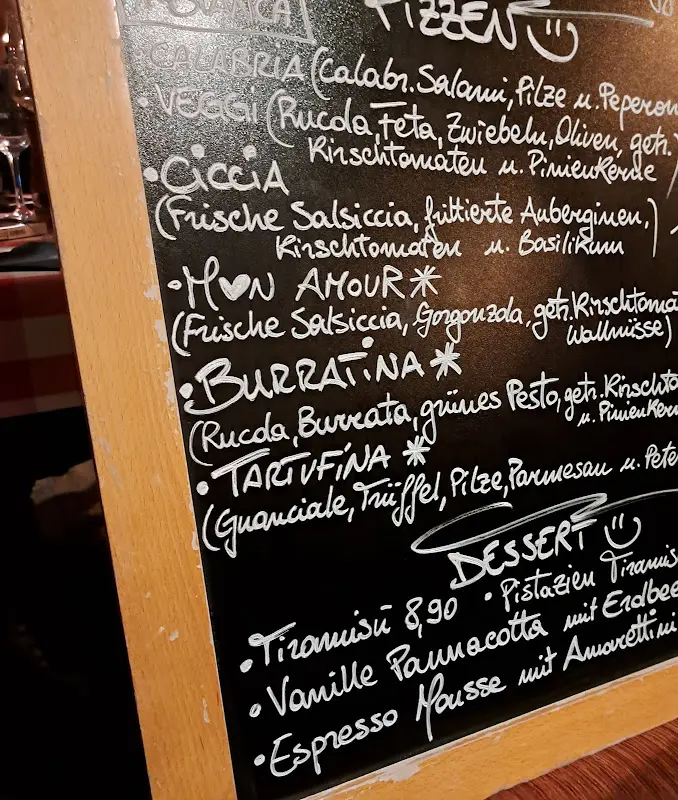 PIZZEN
CALABRIA (Calabr. Salami, Pilze u. Peperon
• VEGGI (Rucola, Feta, Zwiebeln, Oliven, getr.
Kirschtomaten u. Pinienkerne
• CiCCiA
(Frische Salsiccia, frittierte Auberginen,)
Kirschtomaten u. Basilikum
• MON AMOUR *
(Frische Salsiccia, Gorgonzola, getr. Kirschtoma
Wallnüsse)
• BURRATiNA *
(Rucola, Burrata, grünes Pesto, getr. Kirschto
u. Pinienker
• TARTUFiNA *
(Guanciale, Trüffel, Pilze, Parmesan u. Pete
DESSERT
• Tiramisú 8,90 • Pistazien Tiramis
• Vanille Pannacotta mit Erdbee
• Espresso Mousse mit Amarettini